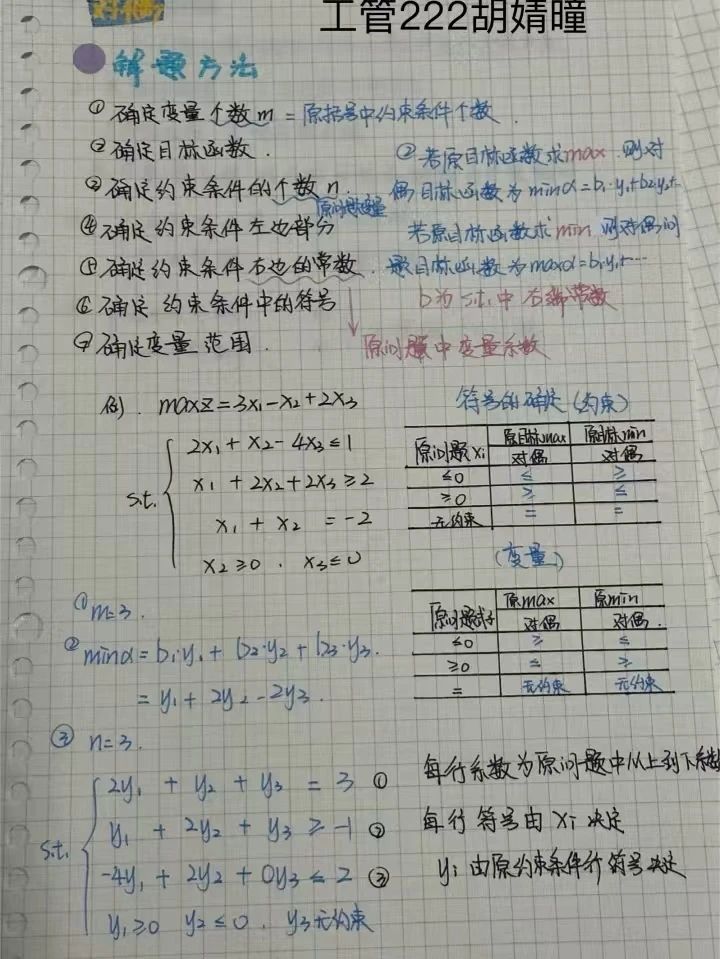 对偶
工管222胡婧曈
解题方法
①确定变量个数m = 原括号中约束条件个数
②确定目标函数.
③确定约束条件的个数n.
原问题变量
④确定约束条件左边部分
⑤确定约束条件右边的常数.
⑥确定约束条件中的符号
⑦确定变量范围.
②若原目标函数求max.则对
偶目标函数为minα=b₁·y₁+b₂y₂+..
若原目标函数求min 则对偶问
题目标函数为maxα=b₁y₁+…
b为s.t.中右端常数
原问题中变量系数
例. maxz=3x₁-x₂+2x₃
s.t.
2x₁+x₂-4x₃≤1
x₁+2x₂+2x₃≥2
x₁+x₂=-2
x₂≥0. x₃≤0
符号的确定(约束)
原问题xi 原目标max 原目标min
对偶 对偶
≤0 ≤ ≥
≥0 ≥ ≤
无约束 = =
(变量)
原问题式子 原max 原min
对偶 对偶.
≤0 ≥ ≤
≥0 ≤ ≥
= 无约束 无约束
①m=3.
②minα=b₁·y₁+b₂·y₂+b₃·y₃.
=y₁+2y₂-2y₃.
③ n=3.
s.t.
2y₁+y₂+y₃=3 ①
y₁+2y₂+y₃≥-1 ②
-4y₁+2y₂+0y₃≤2 ③
y₁≥0 y₂≤0. y₃无约束
每行系数为原问题中从上到下系数
每行符号由xi决定
yi由原约束条件行符号决定